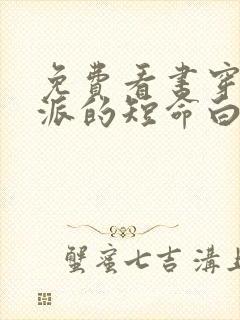 免费看书穿
派的短命白
蟹蜜七吉沟上